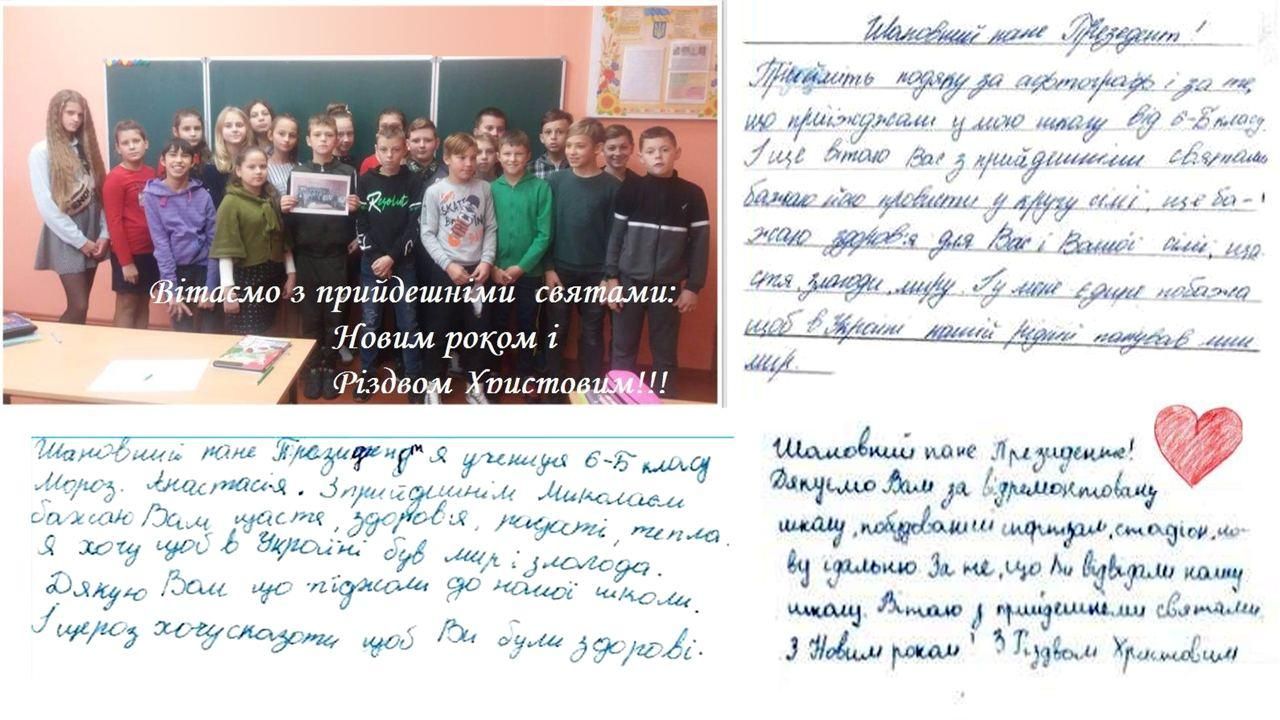 Вітаємо з прийдешніми святами:
Новим роком і
Різдвом Христовим!!!
Шановний пане Презедент!
Прийміть подяку за афтограф і за те,
що приїжджали у мою школу від 6-Б класу.
І ще вітаю Вас з прийдешніми святами
бажаю його провисти у кругу сімї, ще ба-
жаю здоров'я для Вас і Вашої сімї, ща
стя, злагоди, миру. І у мене єдине побажа
щоб в Україні нашій рідній панував
мир.
Шановний пане Президент я учениця 6-Б класу
Мороз. Анастасія. З прийдешнім Миколаєм
бажаю Вам щастя, здоров'я, тепла.
Я хочу щоб в Україні був мир і злогода.
Дякую Вам що піджали до нашої школи.
І щераз хочу сказати щоб Ви були здорові.
Шановний пане Президенте!
Дякуємо Вам за відремонтовану
школу, побудований спортзал, стадіон, но-
ву їдальню. За те, що Ви відвідали нашу
школу. Вітаю з прийдешнеми святами.
З Новим роком! З Різдвом Христовим